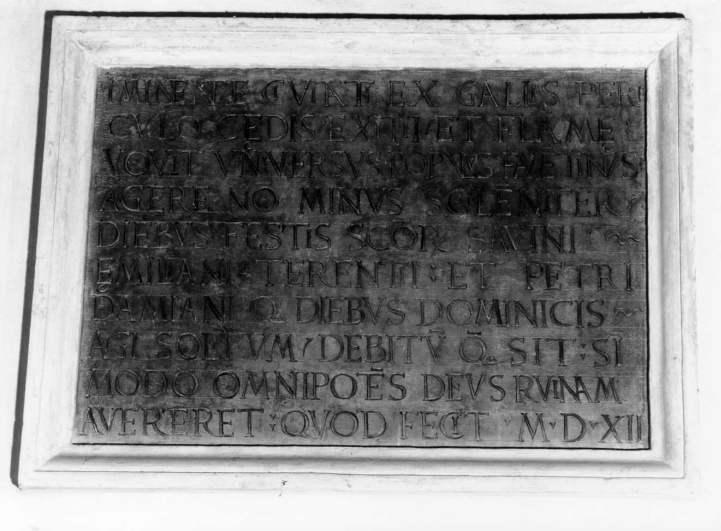 IMINENTE EX GALLIS PERI
CVLO CEDIS EXITII ET FLAMĒ
VOVIT VNIVERSVS POPVLVS FAVENTINVS
AGERE NO MINVS SOLENITER
DIEBVS FESTIS SCOR SAVINI
EMILIANI : TERENTI : ET PETRI
DAMIANI Q̄ DIEBVS DOMINICIS
AGI DEBITV̄ Q̄ SIT : SI
MODO OMNIPOĒS DEVS RVINAM
QVOD FECIT · M · D · XII